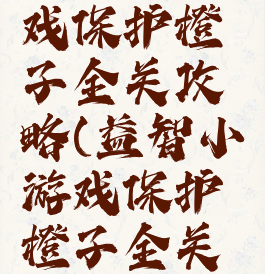 戏保护橙
子全关攻
略(益智小
游戏保护
橙子全关